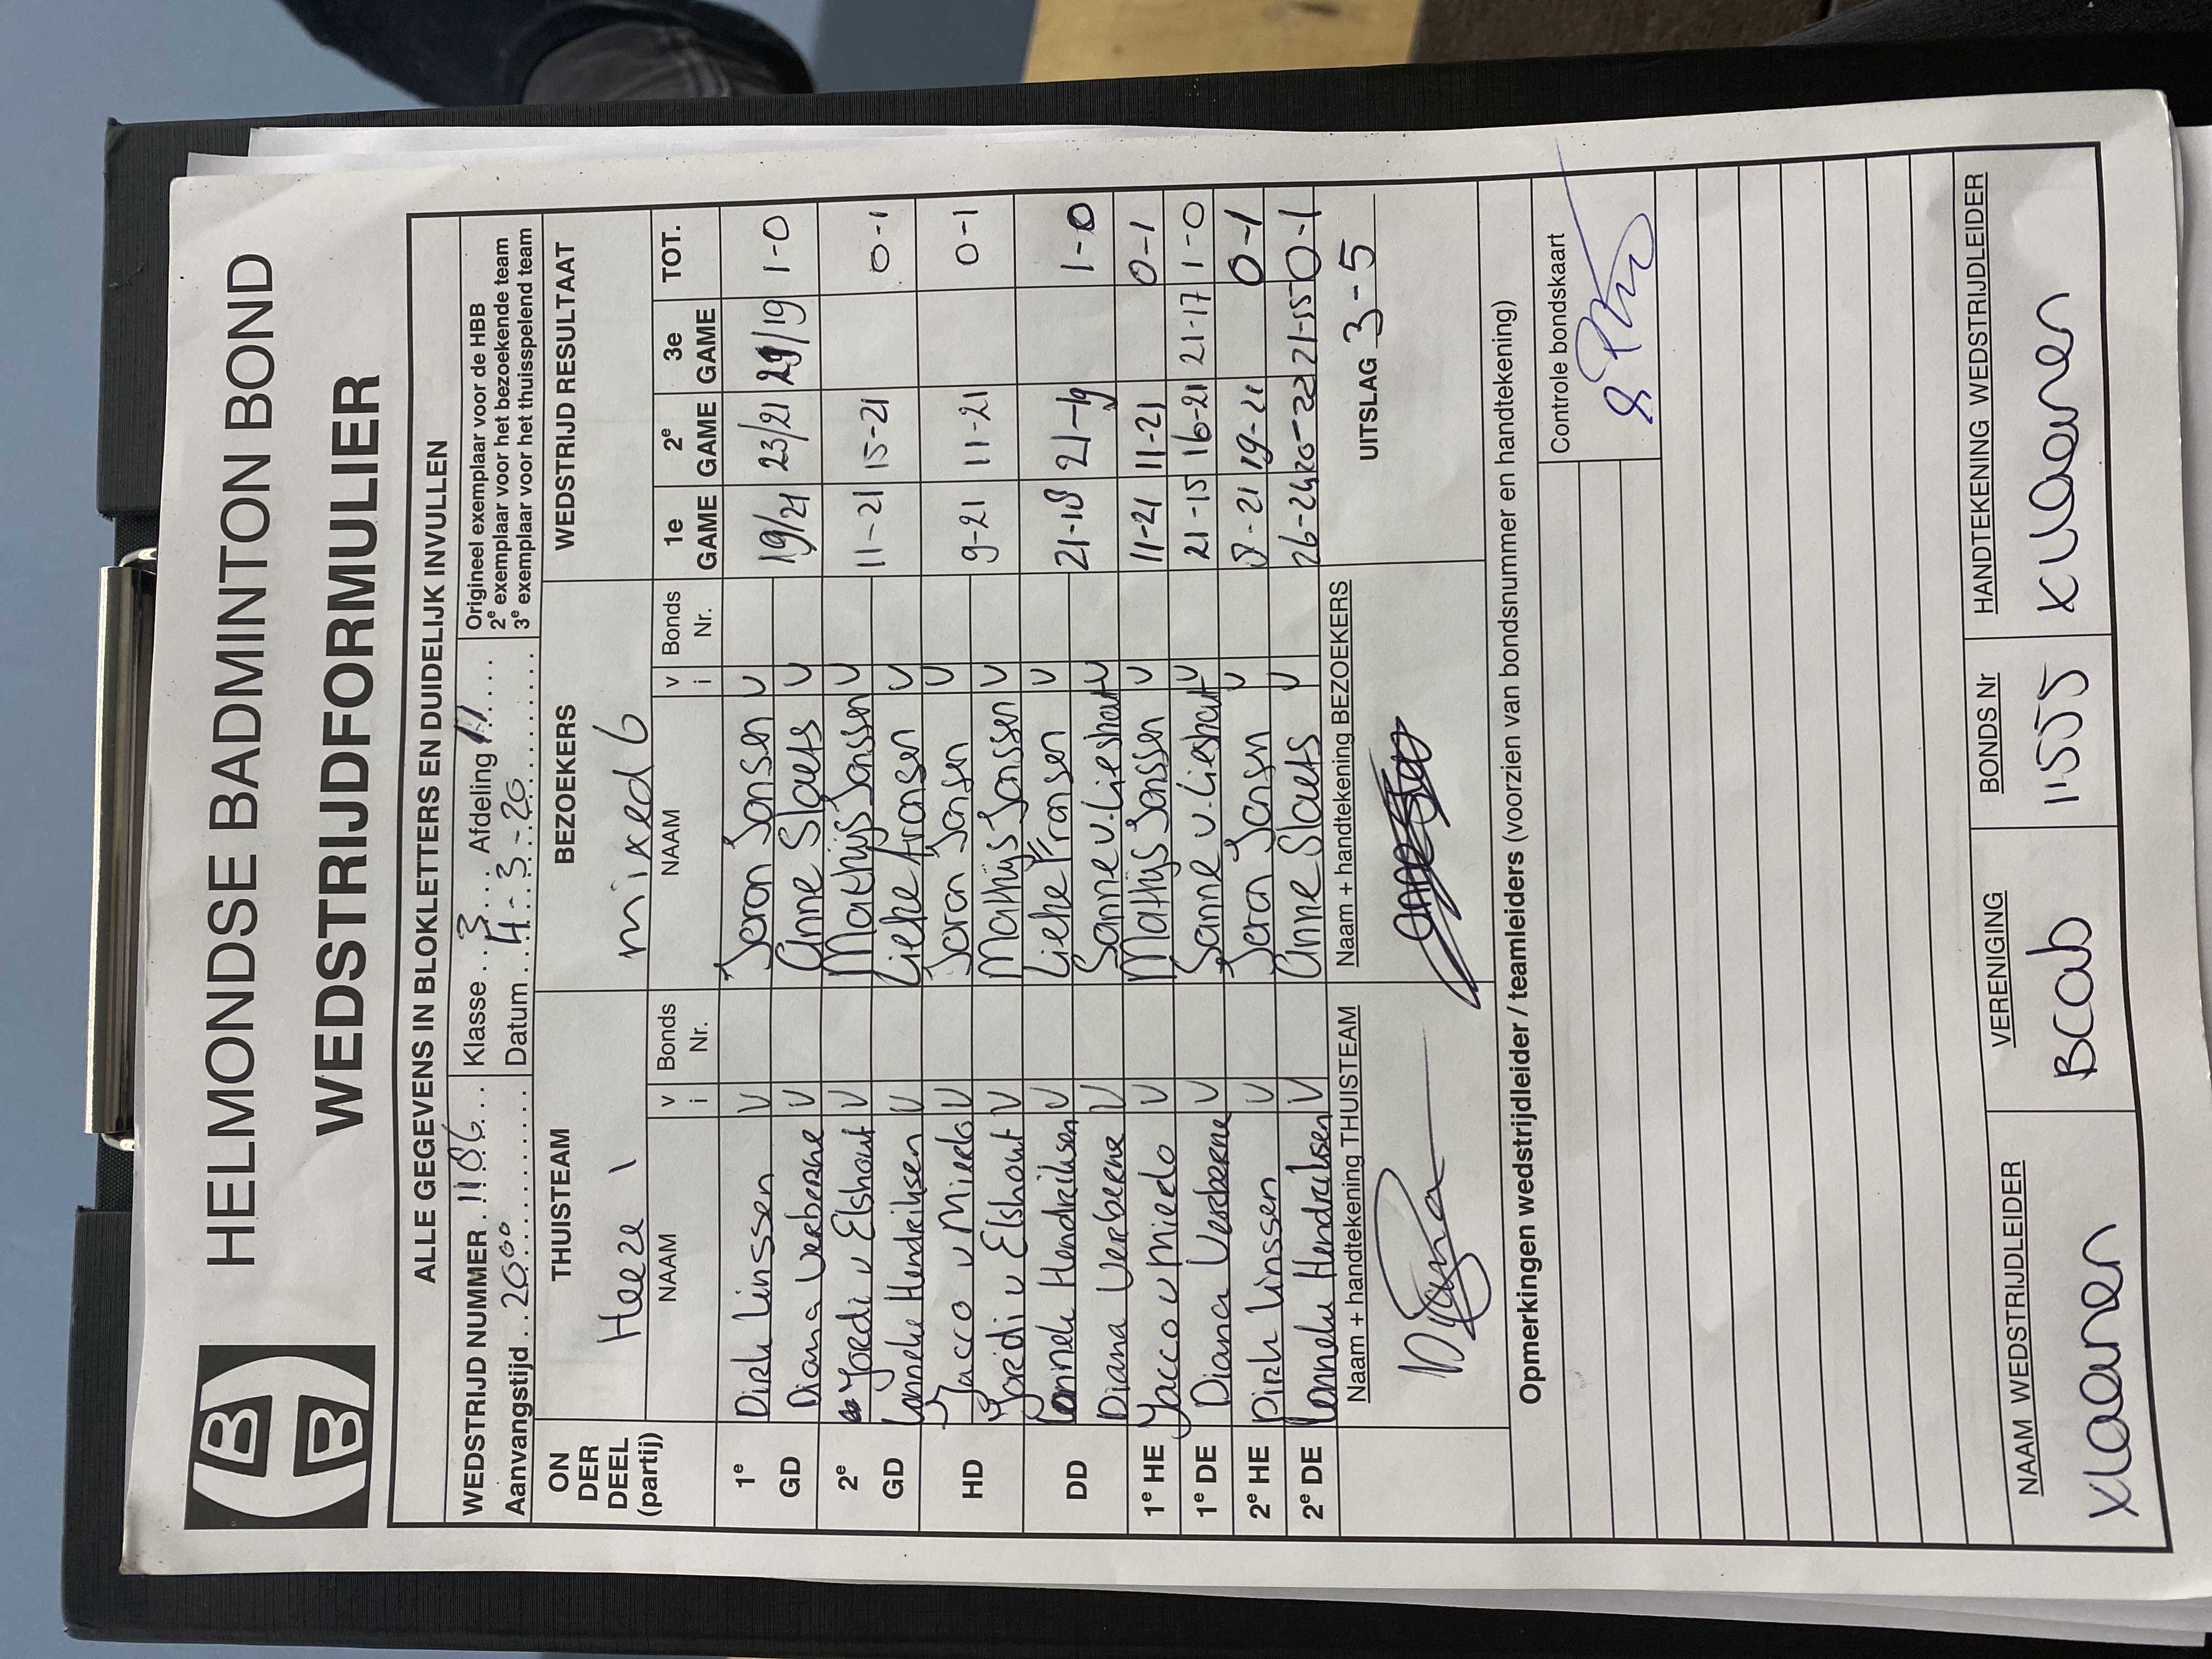 HELMONDSE BADMINTON BOND
WEDSTRIJDFORMULIER
ALLE GEGEVENS IN BLOKLETTERS EN DUIDELIJK INVULLEN
WEDSTRIJD NUMMER 1186 Klasse 3 Afdeling
Aanvangstijd 2000 Datum 4-3-20
Origineel exemplaar voor de HBB
2e exemplaar voor het bezoekende team
3e exemplaar voor het thuisspelend team
ON DER DEEL (partij) THUISTEAM BEZOEKERS WEDSTRIJD RESULTAAT
Heeze 1 mixed 6
NAAM v i Bonds Nr. NAAM v i Bonds Nr. 1e GAME 2e GAME 3e GAME TOT.
1e GD Dirk Linssen V Jeron Jansen V 19/21 23/21 21/19 1-0
Diana Verberne V Anne Slaets V
2e GD Jordi v Elshout V Mathijs Janssen V 11-21 15-21 0-1
Lanneke Hendriksen V Lieke Fransen V
HD Jacco v Mierlo V Jeron Jansen V 9-21 11-21 0-1
Jordi v Elshout V Mathijs Janssen V
DD Lanneke Hendriksen V Lieke Fransen V 21-18 21-19 1-0
Diana Verberne V Sanne v. Lieshout V
1e HE Jacco v Mierlo V Mathijs Janssen V 11-21 11-21 0-1
1e DE Diana Verberne V Sanne v. Lieshout V 21-15 16-21 21-17 1-0
2e HE Dirk Linssen V Jeron Jansen V 8-21 19-21 0-1
2e DE Lanneke Hendriksen V Anne Slaets V 26-24 20-22 21-15 0-1
Naam + handtekening THUISTEAM Naam + handtekening BEZOEKERS UITSLAG 3-5
Opmerkingen wedstrijdleider / teamleiders (voorzien van bondsnummer en handtekening)
Controle bondskaart
NAAM WEDSTRIJDLEIDER VERENIGING BONDS Nr HANDTEKENING WEDSTRIJDLEIDER
Klaenen BCAB 11555 Klaenen